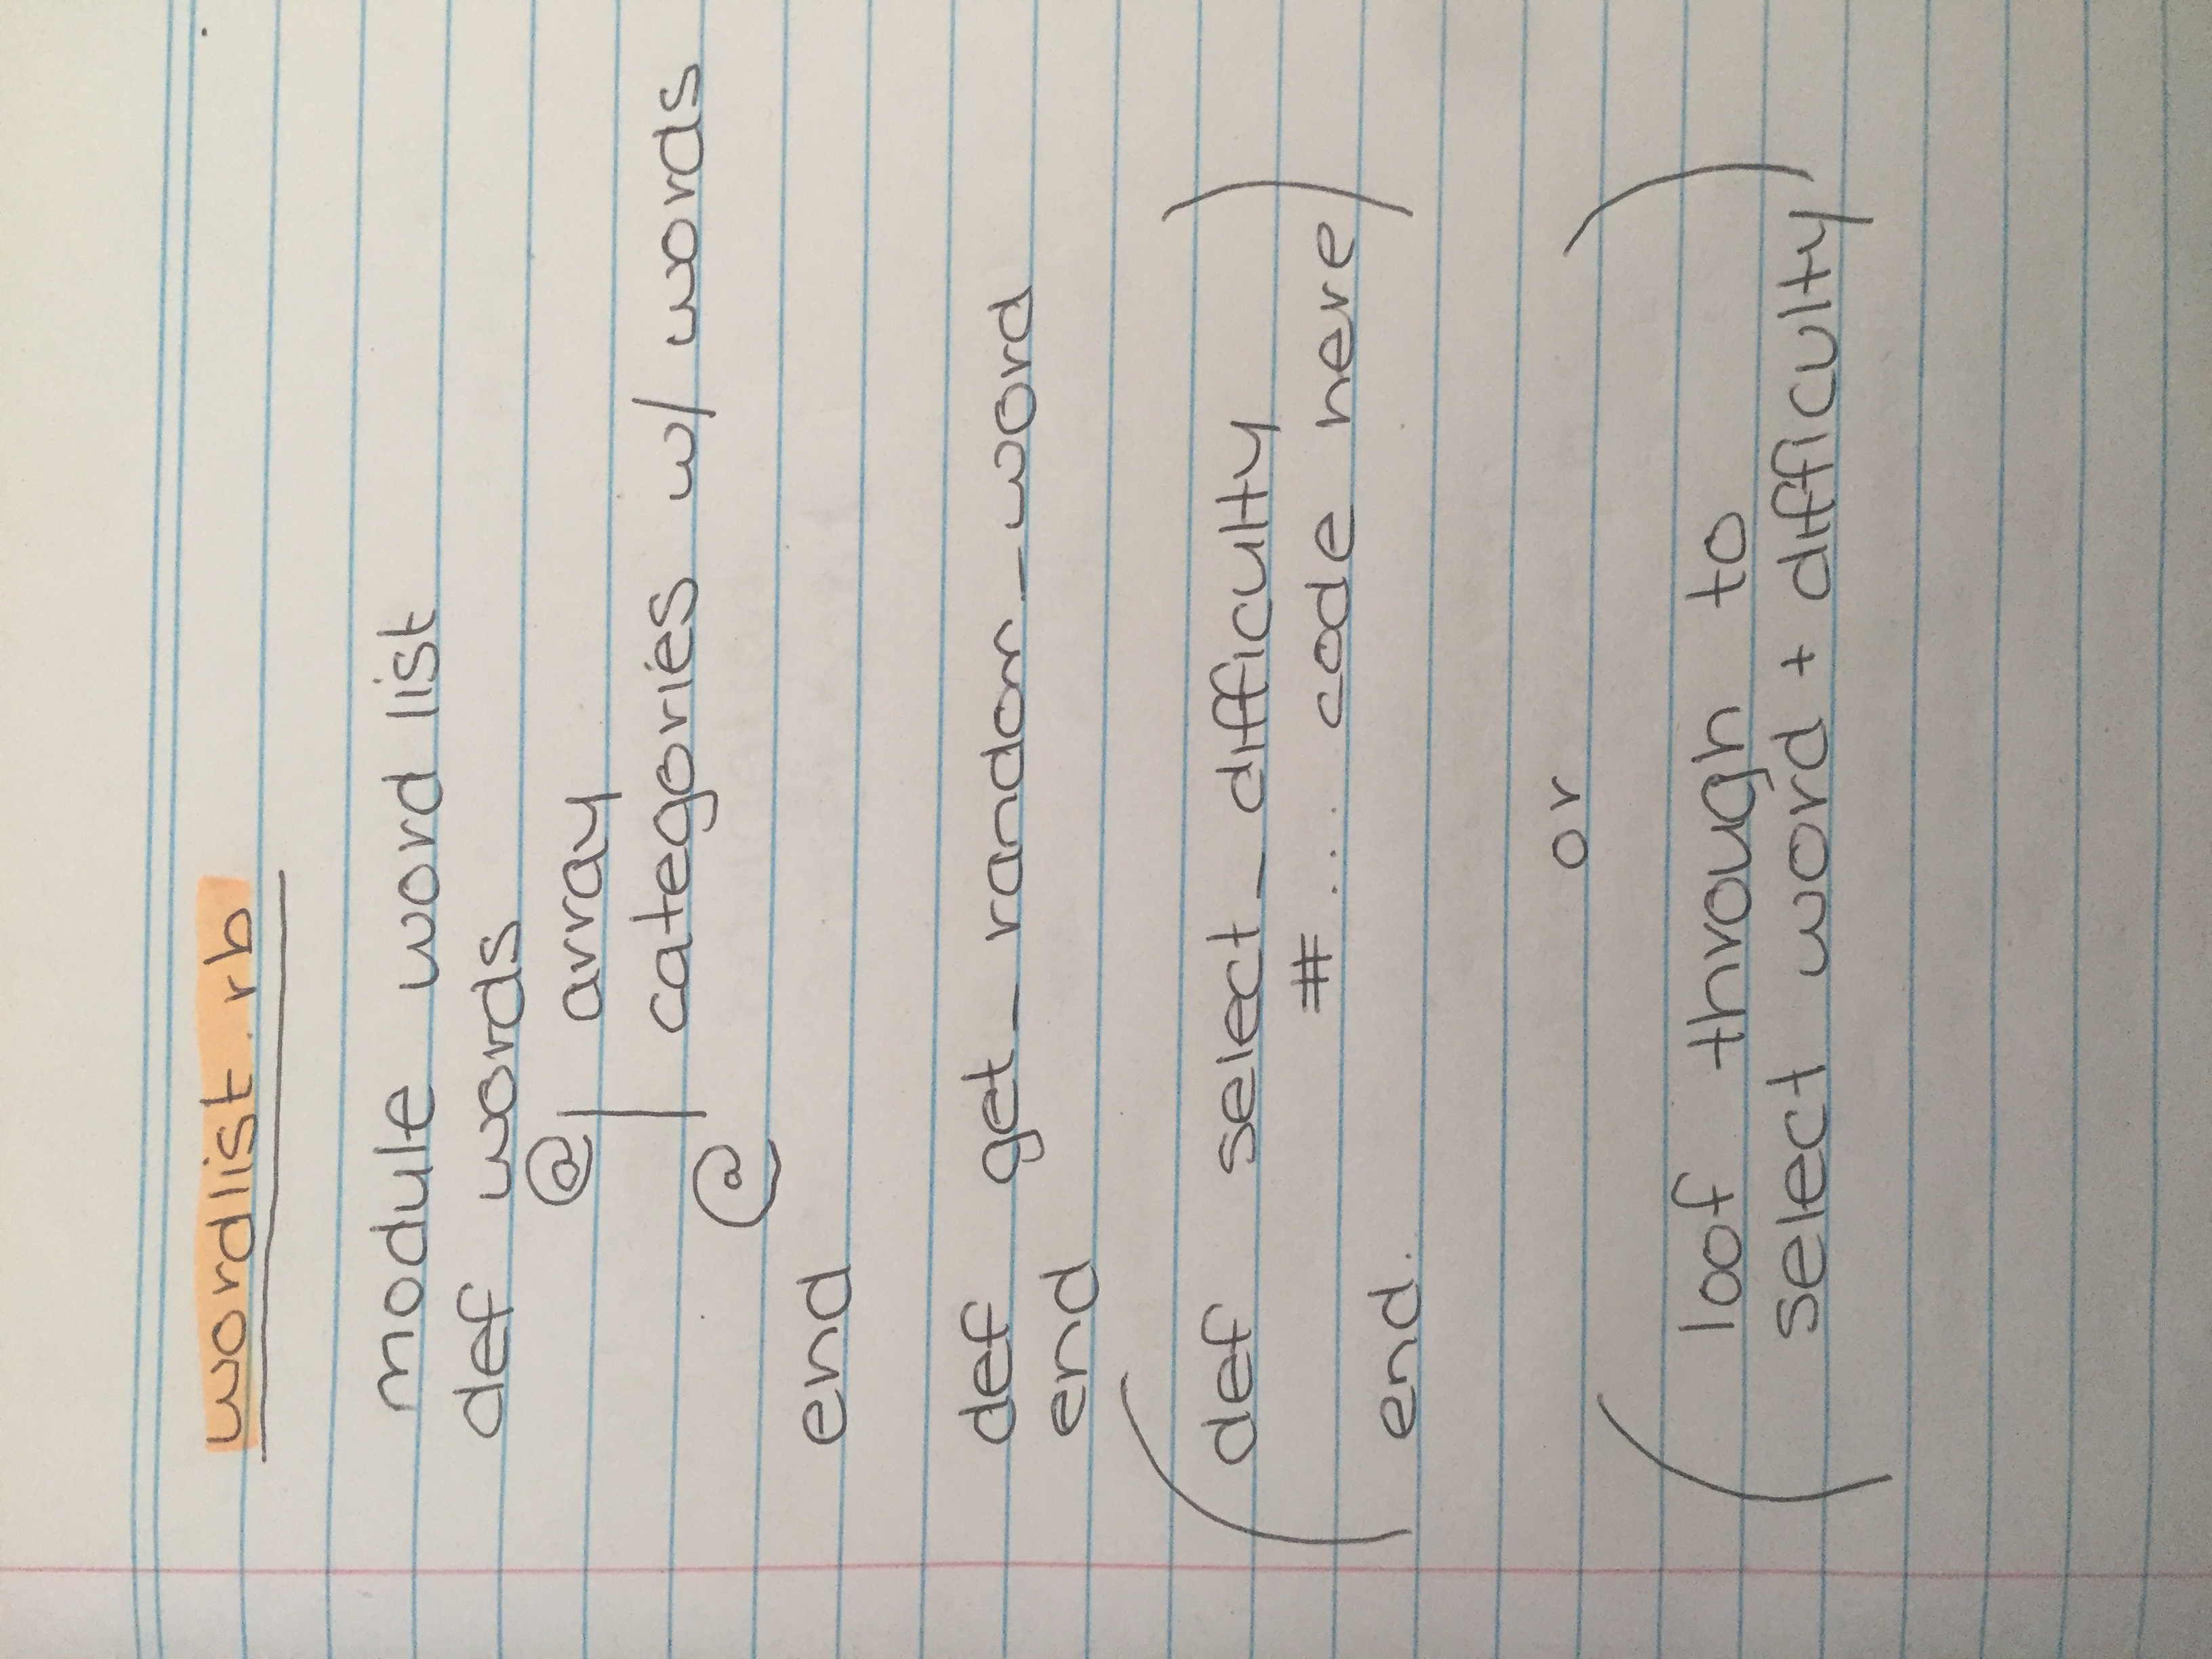 wordlist.rb
module word list
def words
@ array
categories w/ words
@
end
def get_random_word
end
def select_difficulty
#... code here
end.
or
loof through to
select word + difficulty